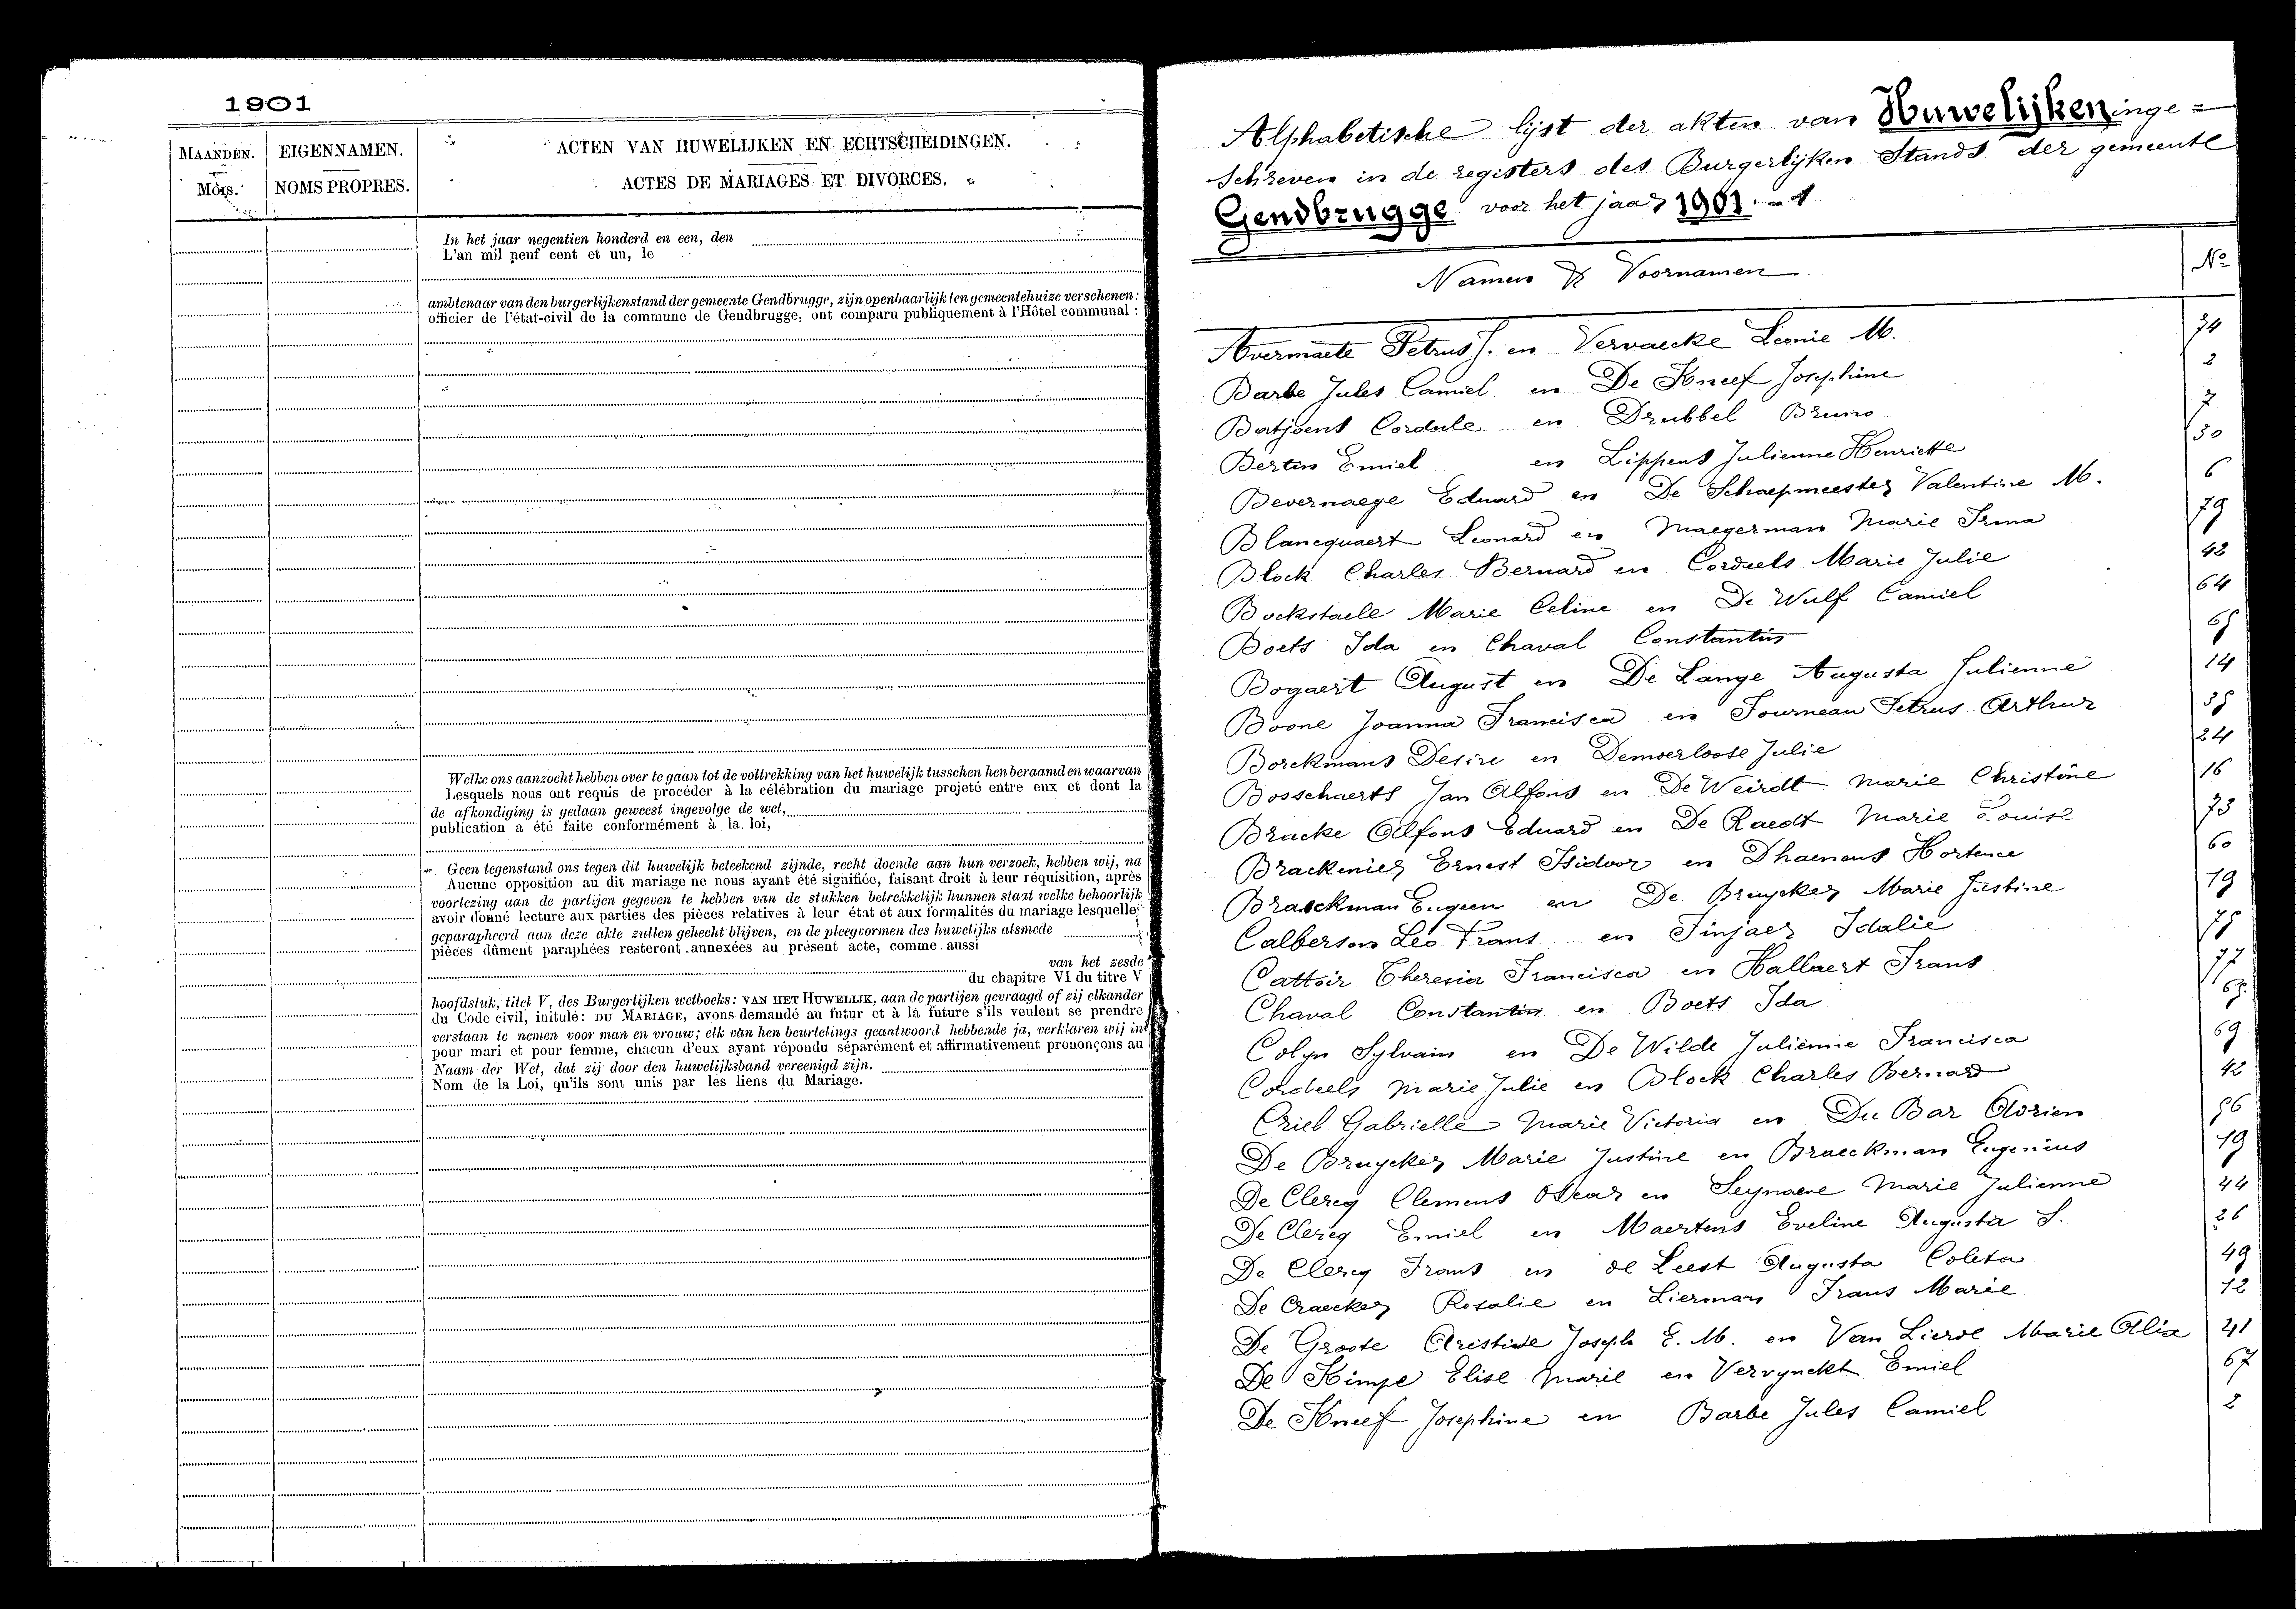 1901
MAANDEN.
Mois.
EIGENNAMEN.
NOMS PROPRES.
ACTEN VAN HUWELIJKEN EN ECHTSCHEIDINGEN.
ACTES DE MARIAGES ET DIVORCES.
In het jaar negentien honderd en een, den
L'an mil neuf cent et un, le
ambtenaar van den burgerlijken stand der gemeente Gendbrugge, zijn openbaarlijk ten gemeentehuize verschenen:
officier de l'état-civil de la commune de Gendbrugge, ont comparu publiquement à l'Hôtel communal :
Welke ons aanzocht hebben over te gaan tot de voltrekking van het huwelijk tusschen hen beraamd en waarvan
Lesquels nous ont requis de procéder à la célébration du mariage projeté entre eux et dont la
de afkondiging is gedaan geweest ingevolge de wet,
publication a été faite conformément à la loi,
Geen tegenstand ons tegen dit huwelijk beteekend zijnde, recht doende aan hun verzoek, hebben wij, na
Aucune opposition au dit mariage ne nous ayant été signifiée, faisant droit à leur réquisition, après
voorlezing aan de partijen gegeven te hebben van de stukken betrekkelijk hunnen staat welke behoorlijk
avoir donné lecture aux parties des pièces relatives à leur état et aux formalités du mariage lesquelles
geparapheerd aan deze akte zullen gehecht blijven, en de pleegvormen des huwelijks alsmede
pièces dûment paraphées resteront annexées au présent acte, comme aussi
van het zesde
du chapitre VI du titre V
hoofdstuk, titel V, des Burgerlijken wetboeks: VAN HET HUWELIJK, aan de partijen gevraagd of zij elkander
du Code civil, initulé: DU MARIAGE, avons demandé au futur et à la future s'ils veulent se prendre
verstaan te nemen voor man en vrouw; elk van hen beurtelings geantwoord hebbende ja, verklaren wij in
pour mari et pour femme, chacun d'eux ayant répondu séparément et affirmativement prononçons au
Naam der Wet, dat zij door den huwelijksband vereenigd zijn.
Nom de la Loi, qu'ils sont unis par les liens du Mariage.
Alphabetische lijst der akten van Huwelijken inge=
schreven in de registers des Burgerlijken Stands der gemeente
Gendbrugge voor het jaar 1901. - 1
Namen & Voornamen No
Avermaete Petrus J. en Vervaecke Leonie M. 34
Barbe Jules Camiel en De Kneef Josephine 2
Batjoens Cordule en Drubbel Bruno 7
Bertin Emiel en Lippens Julienne Henriette 30
Bevernaege Eduard en De Schaepmeester Valentine M. 6
Blancquaert Leonard en Maegerman Marie Irma 79
Block Charles Bernard en Cordeels Marie Julie 42
Bockstaele Marie Celine en De Wulf Camiel 64
Boets Ida en Chaval Constantin 65
Bogaert August en De Lange Augusta Julienne 14
Boone Joanna Francisca en Fourneau Petrus Arthur 35
Borckmans Desire en Demoerloose Julie 24
Bosschaerts Jan Alfons en De Weirdt Marie Christine 16
Bracke Alfons Eduard en De Raedt Marie Louise 73
Brackenier Ernest Isidoor en Dhaenens Hortence 60
Braeckman Eugeen en De Bruycker Marie Justine 19
Calberson Leo Frans en Finjaer Idalie 75
Cattoir Theresia Francisca en Hallaert Frans 77
Chaval Constantin en Boets Ida 65
Colyn Sylvain en De Wilde Julienne Francisca 69
Cordeels Marie Julie en Block Charles Bernard 42
Criel Gabrielle Marie Victoria en Du Bar Adrien 56
De Bruycker Marie Justine en Braeckman Eugenius 19
De Clercq Clemens Oscar en Seynaeve Marie Julienne 44
De Clercq Emiel en Maertens Eveline Augusta S. 26
De Clercq Frans en de Leest Augusta Coleta 49
De Craecker Rosalie en Lierman Frans Marie 12
De Groote Aristide Joseph E. M. en Van Lierde Marie Alix 41
De Kimpe Elise Marie en Vervynckt Emiel 67
De Kneef Josephine en Barbe Jules Camiel 2